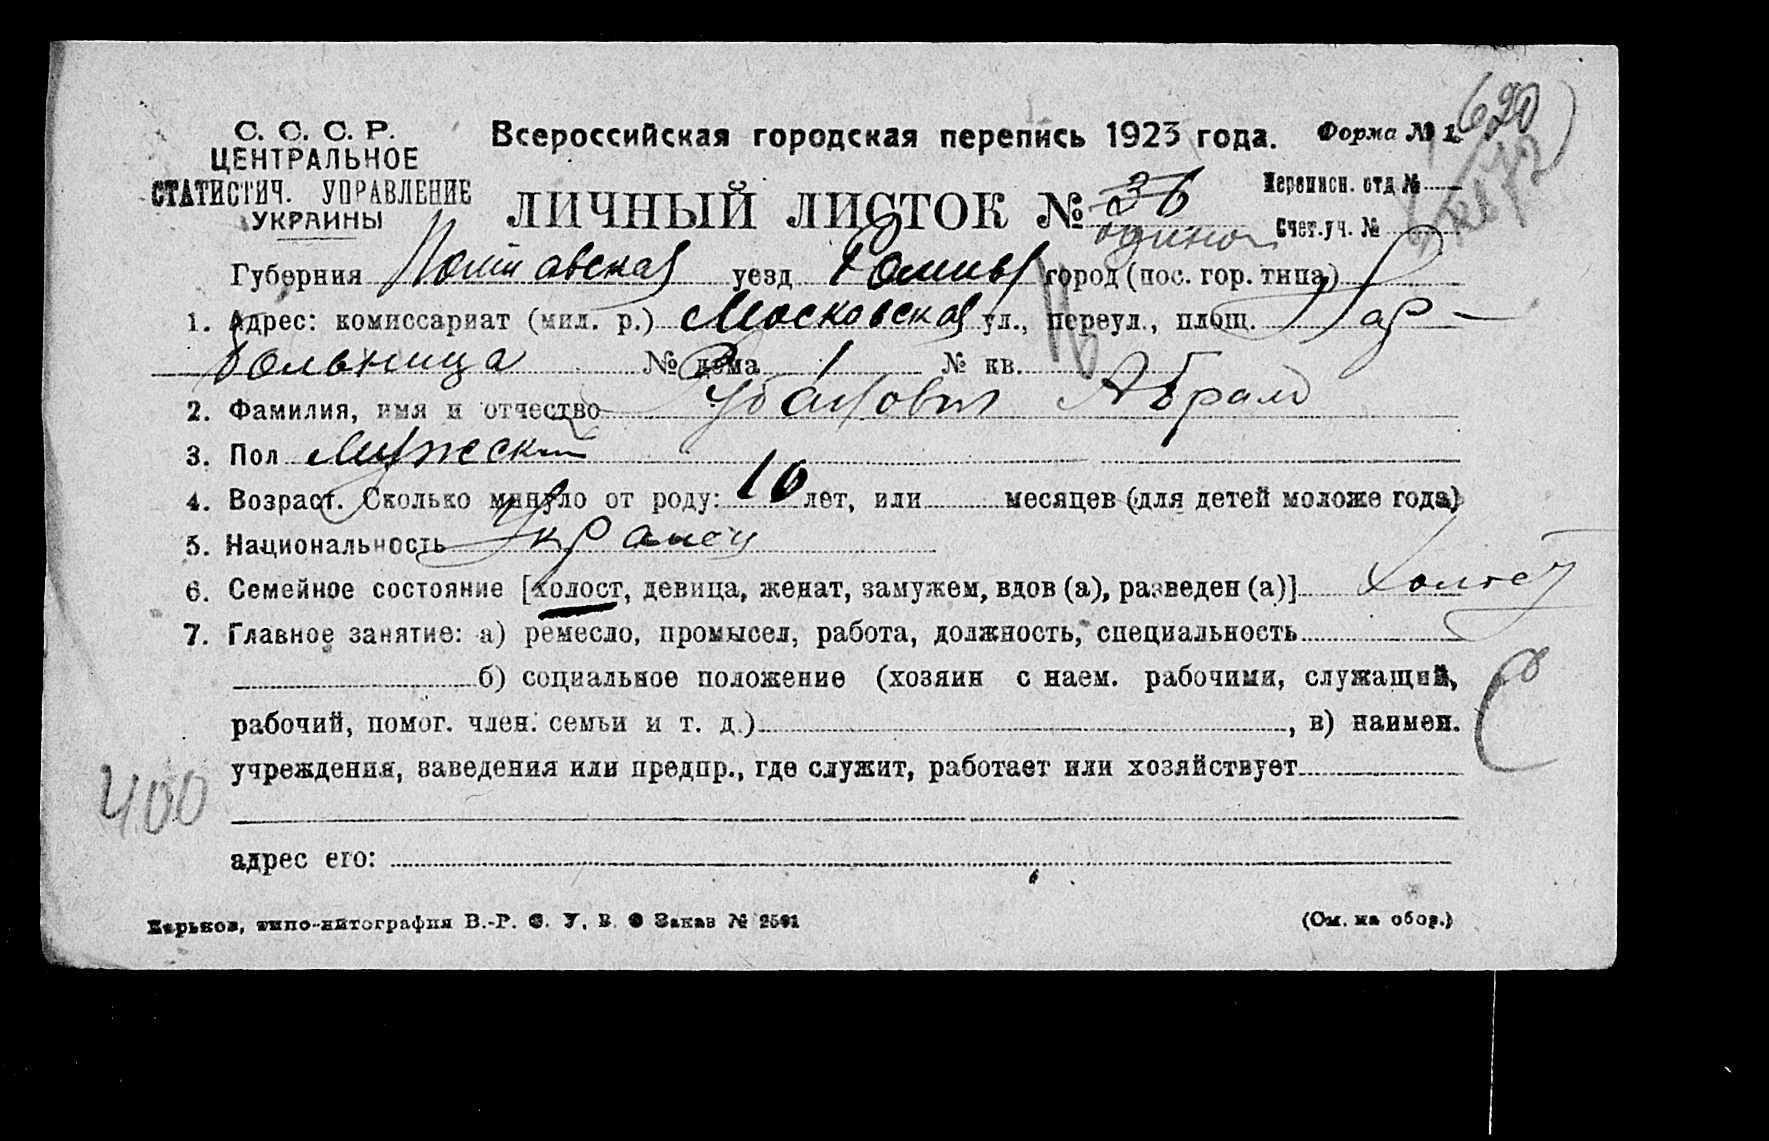 С. С. С. Р.
ЦЕНТРАЛЬНОЕ
СТАТИСТИЧ. УПРАВЛЕНИЕ
УКРАИНЫ
Всероссийская городская перепись 1923 года. Форма № 1.
690
ЛИЧНЫЙ ЛИСТОК № 36
Переписн. отд №
Счет.уч. №
Губерния Полтавская уезд Ромны город (пос. гор. типа)
1. Адрес: комиссариат (мил. р.) Московская ул., переул., площ.
больница № дома 1 № кв.
2. Фамилия, имя и отчество Абрам
3. Пол Мужской
4. Возраст. Сколько минуло от роду: 10 лет, или месяцев (для детей моложе года)
5. Национальность
6. Семейное состояние [холост, девица, женат, замужем, вдов (а), разведен (а)] холост
7. Главное занятие: а) ремесло, промысел, работа, должность, специальность
б) социальное положение (хозяин с наем. рабочими, служащий,
рабочий, помог. член. семьи и т. д.) , в) наимен.
учреждения, заведения или предпр., где служит, работает или хозяйствует
400
адрес его:
Харьков, типо-литография В.-Р. С. У. В. О Заказ № 2591 (См. на обор.)